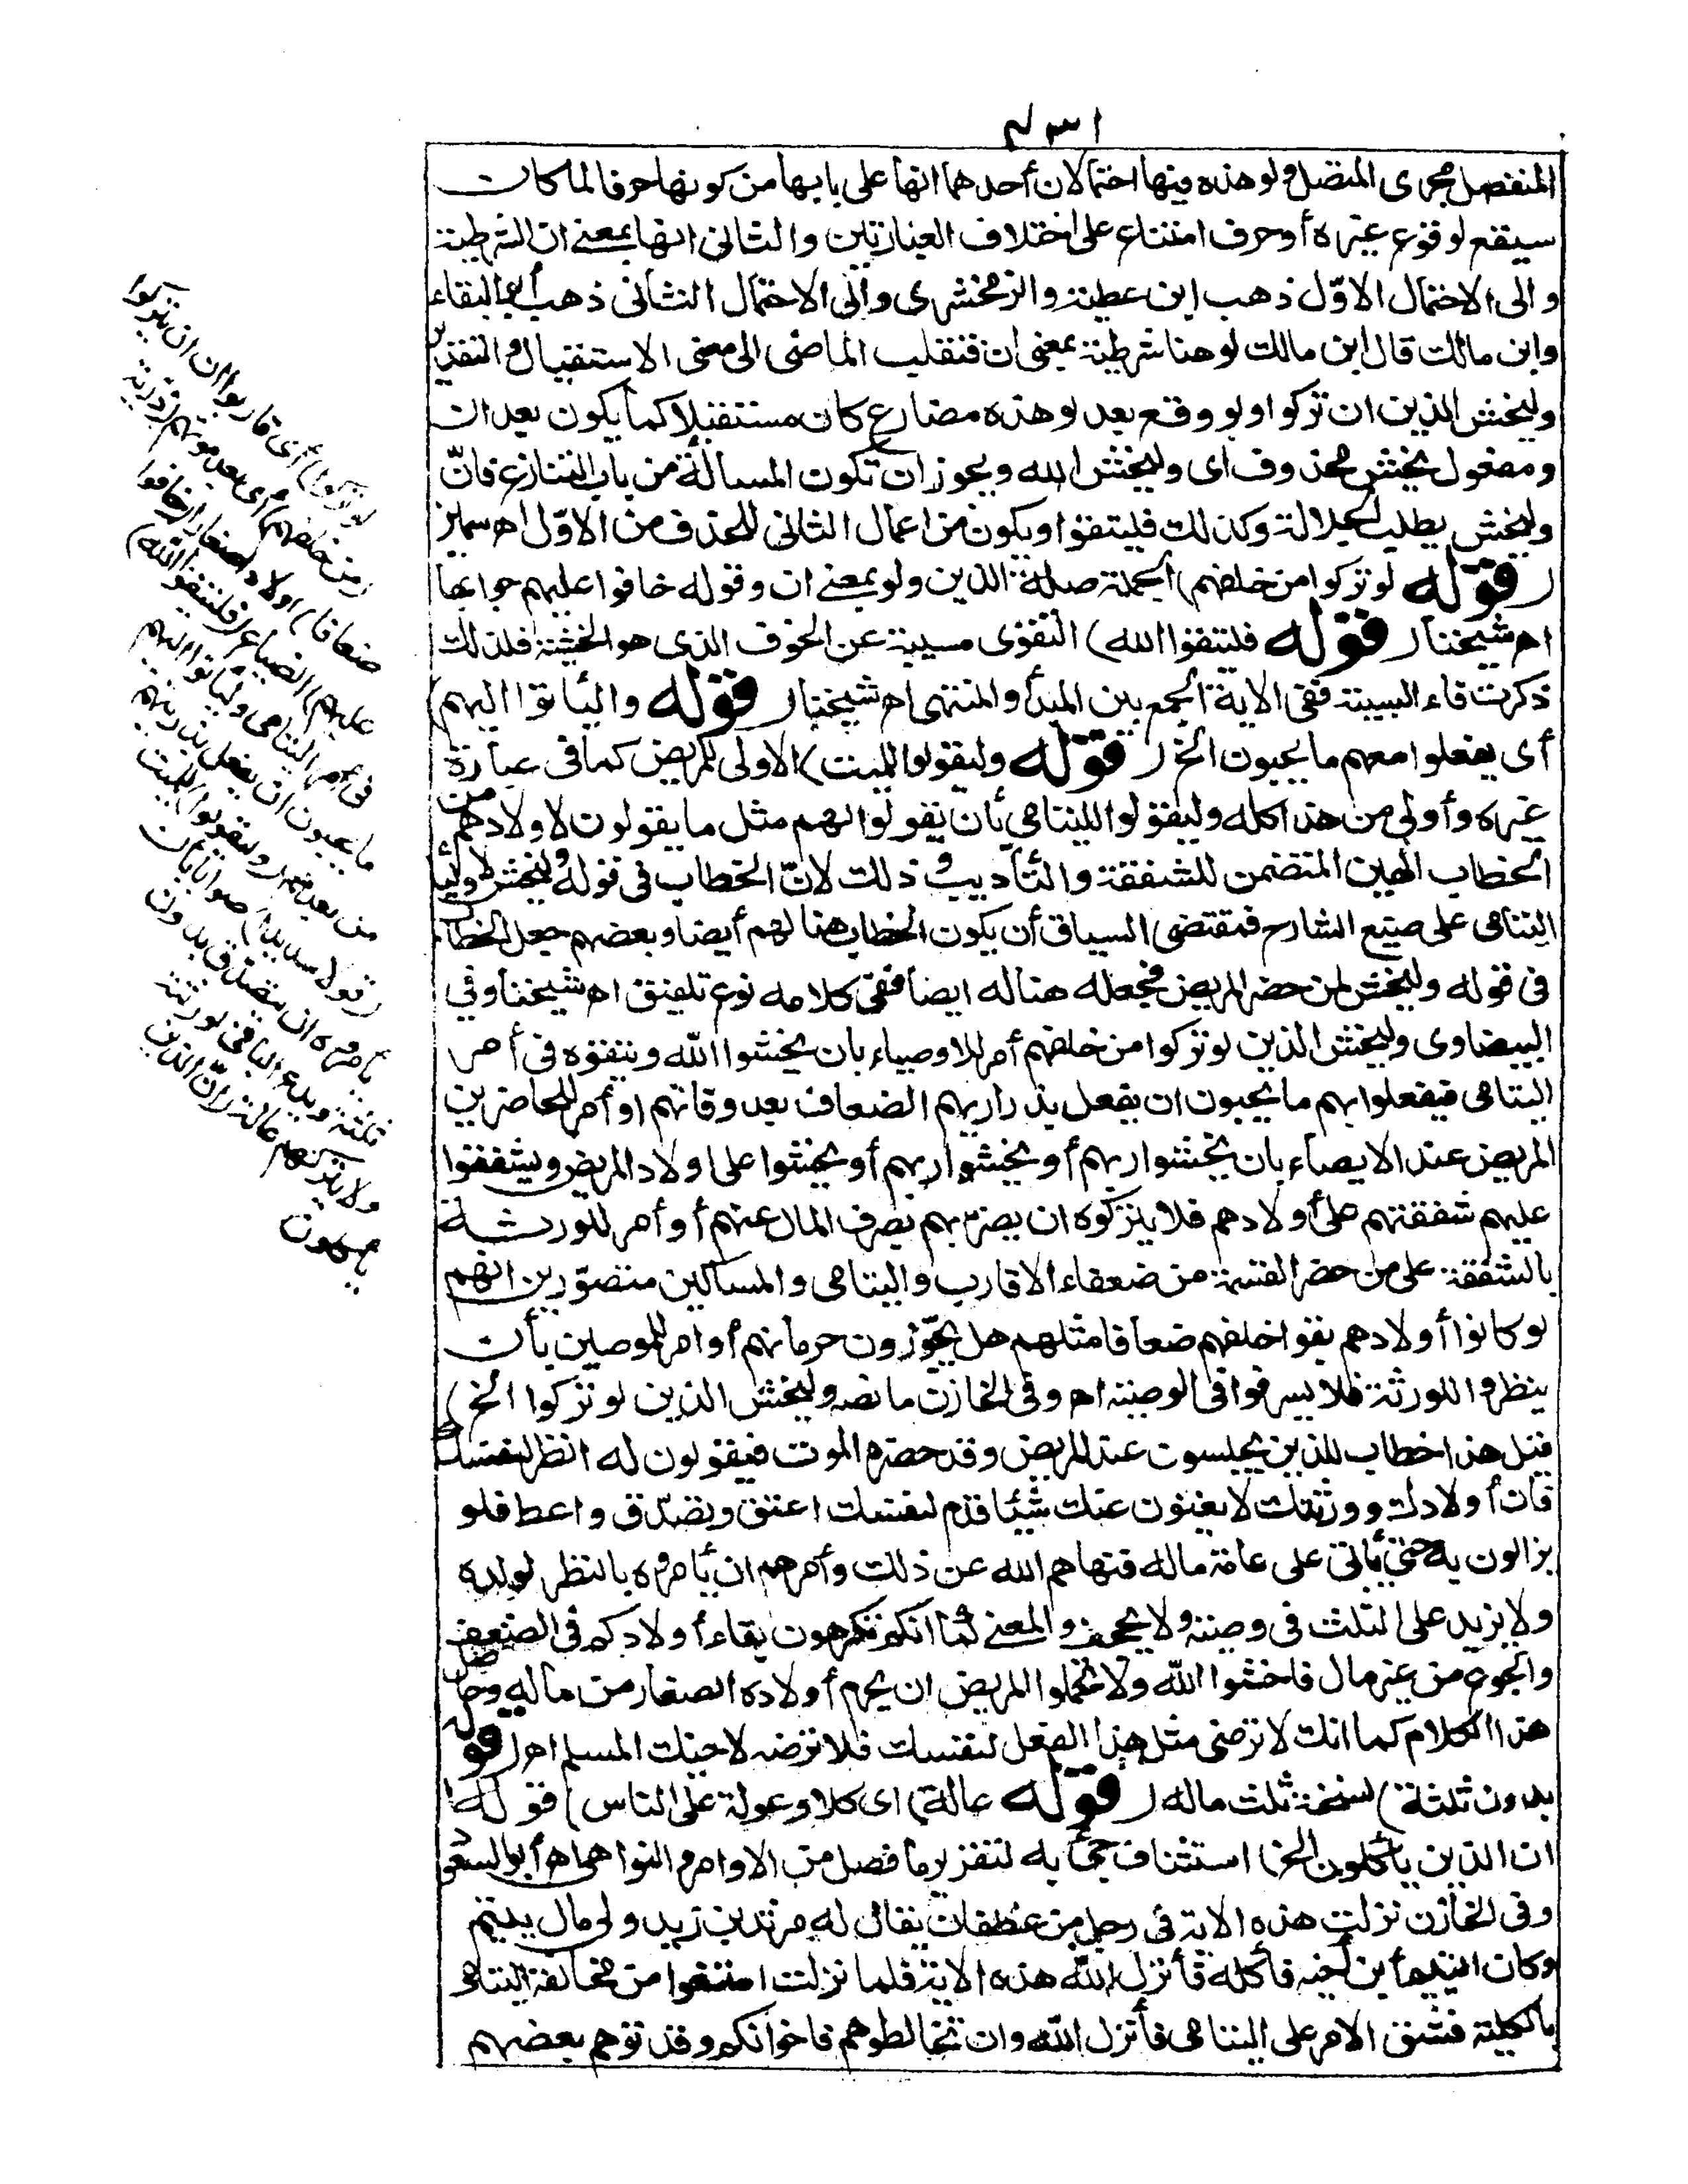 ٤٣١
المنفصل مجرى المتصل ولو هذه فيها احتمالان أحدهما انها على بابها من كونها حرفا لما كان
سيقع لوقوع غيره أو حرف امتناع على اختلاف العبارتين والثانى انها بمعنى ان الشرطية
والى الاحتمال الاوّل ذهب ابن عطية والزمخشرى والى الاحتمال الثانى ذهب أبو البقاء
وابن مالك قال ابن مالك لو هنا شرطية بمعنى ان فتقلب الماضى الى معنى الاستقبال والتقدير
وليخش الذين ان تركوا ولو وقع بعد لو هذه مضارع كان مستقبلا كما يكون بعد ان
ومفعول يخش محذوف اى وليخش الله ويجوز ان تكون المسألة من باب التنازع فانّ
وليخش يطلب الجلالة وكذلك فليتقوا ويكون من اعمال الثانى للحذف من الاوّل اه سمين
(قوله لو تركوا من خلفهم) الجملة صلة الذين ولو بمعنى ان وقوله خافوا عليهم جوابها
اه شيخنا (قوله فليتقوا الله) التقوى مسببة عن الخوف الذى هو الخشية فلذلك
ذكرت فاء السببية ففى الآية الجمع بين المبدأ والمنتهى اه شيخنا (قوله وليأتوا اليهم)
أى يفعلوا معهم ما يحبون الخ (قوله وليقولوا للميت) الاولى للمريض كما فى عبارة
غيره وأولى من هذا كله وليقولوا لليتامى بأن يقولوا لهم مثل ما يقولون لاولادهم من
الخطاب الهين المتضمن للشفقة والتأديب وذلك لانّ الخطاب فى قوله وليخش لاولياء
اليتامى على صنيع الشارح فمقتضى السياق أن يكون الخطاب هنا لهم أيضا وبعضهم جعل الخطاب
فى قوله وليخش لمن حضر المريض فجعله هنا له ايضا ففى كلامه نوع تلفيق اه شيخنا وفي
البيضاوى وليخش الذين لو تركوا من خلفهم أمر للاوصياء بان يخشوا الله ويتقوه فى أمر
اليتامى فيفعلوا بهم ما يحبون ان يفعل بذراريهم الضعاف بعد وفاتهم او أمر للحاضرين
المريض عند الايصاء بان يخشوا ربهم أو يخشوا ربهم أو يخشوا على اولاد المريض ويشفقوا
عليهم شفقتهم على أولادهم فلا يتركوه ان يضرّ بهم بصرف المال عنهم أو أمر للورثة
بالشفقة على من حضر القسمة من ضعفاء الاقارب واليتامى والمساكين متصوّرين انهم
لو كانوا أولادهم بقوا خلفهم ضعافا مثلهم هل يجوّزون حرمانهم أو امر للموصين بأن
ينظروا للورثة فلا يسرفوا فى الوصية اه وفى الخازن ما نصه وليخش الذين لو تركوا الخ
قيل هذا خطاب للذين يجلسون عند المريض وقد حضره الموت فيقولون له انظر لنفسك
فان أولادك وورثتك لا يغنون عنك شيئا قدّم لنفسك اعتق وتصدّق واعط فلا
يزالون به حتى يأتى على عامة ماله فنهاهم الله عن ذلك وأمرهم ان يأمروه بالنظر لولده
ولا يزيد على الثلث فى وصيته ولا يجحف والمعنى كما انكم تكرهون بقاء أولادكم فى الضعف
والجوع من غير مال فاخشوا الله ولا تحملوا المريض ان يحرم أولاده الصغار من ماله وحاصل
هذا الكلام كما انك لا ترضى مثل هذا الفعل لنفسك فلا ترضه لاخيك المسلم اه (قوله
بدون ثلثه) نسخة ثلث ماله (قوله عالة) اى كلا وعولة على الناس (قوله
ان الذين يأكلون الخ) استئناف جئ به لتقرير ما فصل من الاوامر والنواهى اه أبو السعود
وفى الخازن نزلت هذه الاية فى رجل من غطفان يقال له مرثد بن زيد ولى مال يتيم
وكان اليتيم ابن أخيه فأكله فأنزل الله هذه الاية فلما نزلت امتنعوا من مخالطة اليتامى
بالكلية فشق الامر على اليتامى فأنزل الله وان تخالطوهم فاخوانكم وقد توهم بعضهم
لو تركوا) أى قاربوا ان ان يتركوا
(من خلفهم) أى بعد موتهم (ذرية
ضعافا) اولادا صغارا (خافوا
عليهم) الضياع (فليتقوا الله)
فى أمر اليتامى وليأتوا اليهم
ما يحبون ان يفعل بذريتهم
من بعدهم (وليقولوا) للميت
(قولا سديدا) صوابا بان
يأمروه ان يتصدق بدون
ثلثه ويدع الباقى لورثته
ولا يتركهم عالة (ان الذين
يأكلون